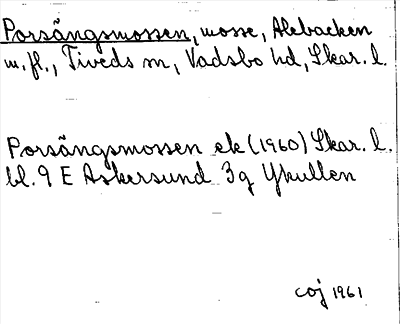 Porsängsmossen, mosse, Alebacken
m.fl., Tiveds sn, Vadsbo hd, Skar. l.
Porsängsmossen ek (1960) Skar. l.
bl. 9 E Askersund 3g Ykullen
coj 1961